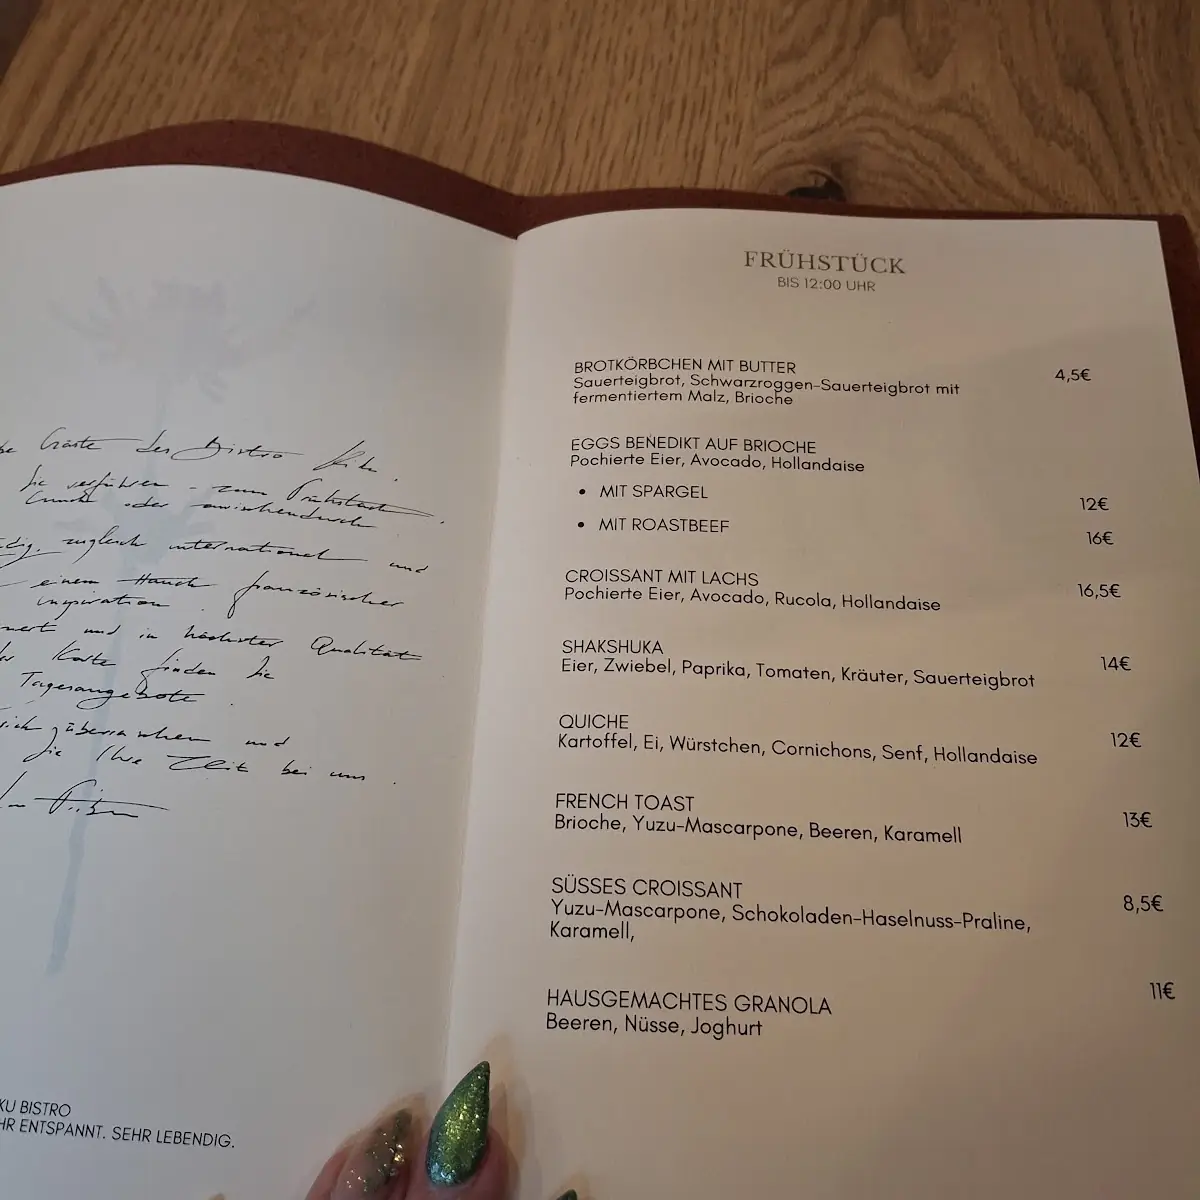 Gäste des Bistro
Sie verführen - zum Frühstück,
Lunch oder zwischendurch
zugleich international und
einem Hauch französischer
inspiration.
und in höchster Qualität
Karte finden Sie
Tagesangebote.
überraschen und
Sie Ihre Zeit bei uns.
KU BISTRO
HR ENTSPANNT. SEHR LEBENDIG.
FRÜHSTÜCK
BIS 12:00 UHR
BROTKÖRBCHEN MIT BUTTER 4,5€
Sauerteigbrot, Schwarzroggen-Sauerteigbrot mit
fermentiertem Malz, Brioche
EGGS BENEDIKT AUF BRIOCHE
Pochierte Eier, Avocado, Hollandaise
• MIT SPARGEL 12€
• MIT ROASTBEEF 16€
CROISSANT MIT LACHS 16,5€
Pochierte Eier, Avocado, Rucola, Hollandaise
SHAKSHUKA 14€
Eier, Zwiebel, Paprika, Tomaten, Kräuter, Sauerteigbrot
QUICHE 12€
Kartoffel, Ei, Würstchen, Cornichons, Senf, Hollandaise
FRENCH TOAST 13€
Brioche, Yuzu-Mascarpone, Beeren, Karamell
SÜSSES CROISSANT 8,5€
Yuzu-Mascarpone, Schokoladen-Haselnuss-Praline,
Karamell,
HAUSGEMACHTES GRANOLA 11€
Beeren, Nüsse, Joghurt